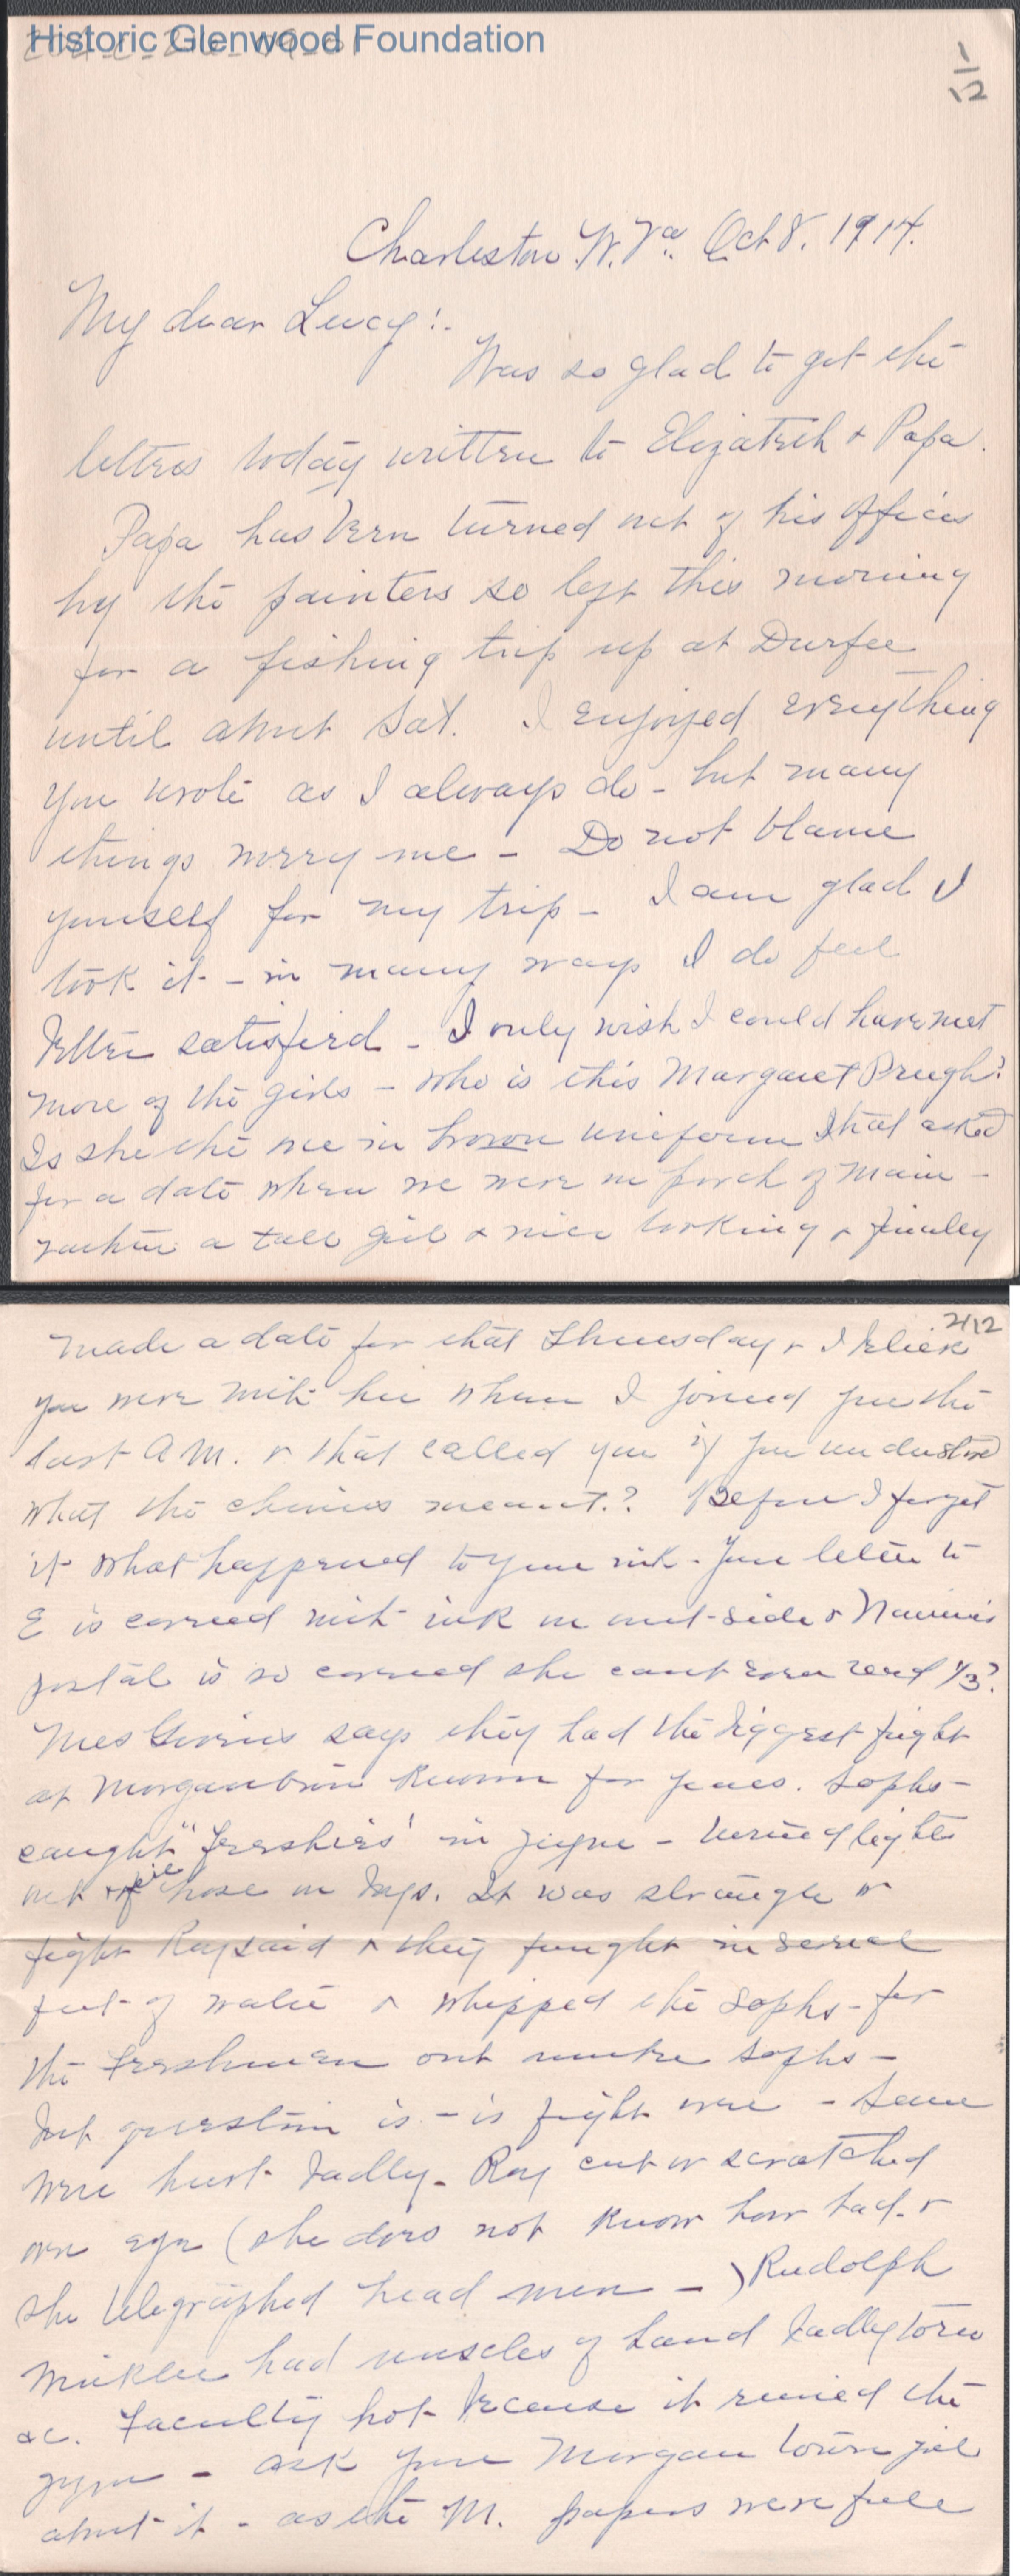 Historic Glenwood Foundation
1/12
Charleston W. Va. Oct 8. 1914.
My dear Lucy:-
Was so glad to get the
letters today written to Elizabeth + Papa.
Papa has been turned out of his offices
by the painters so left this morning
for a fishing trip up at Durfee
until about Sat. I enjoyed everything
you wrote as I always do - but many
things worry me - Do not blame
yourself for my trip - I am glad I
took it - in many ways I do feel
better satisfied - I only wish I could have met
more of the girls - Who is this Margaret Preugh?
Is she the one in brown uniform that asked
for a date when we were on porch of Main -
rather a tall girl + nice looking + finally
2/12
made a date for that Thursday + I believe
you were with her when I joined you the
last A.M. + that called you if you understood
what the chimes meant.? Before I forget
it what happened to your ink - Your letter to
E is covered with ink on out-side + Nannie's
postal is so covered she cant even read 1/3?
Mrs says they had the biggest fight
at Morgantown known for years. Sophs -
caught "Freshies" in gym - turned lights
out + hose on boys. It was struggle or
fight Ray said + they fought in several
feet of water + whipped the Sophs - for
the Freshmen out number Sophs -
but question is - is fight over - Some
were hurt badly - Ray cut or scratched
over eye (she does not know how bad - +
she telegraphed head men -) Rudolph
had muscles of hand badly torn
&c. Faculty hot because it ruined the
gym - ask your Morgan town girl
about it - as the M. papers were full